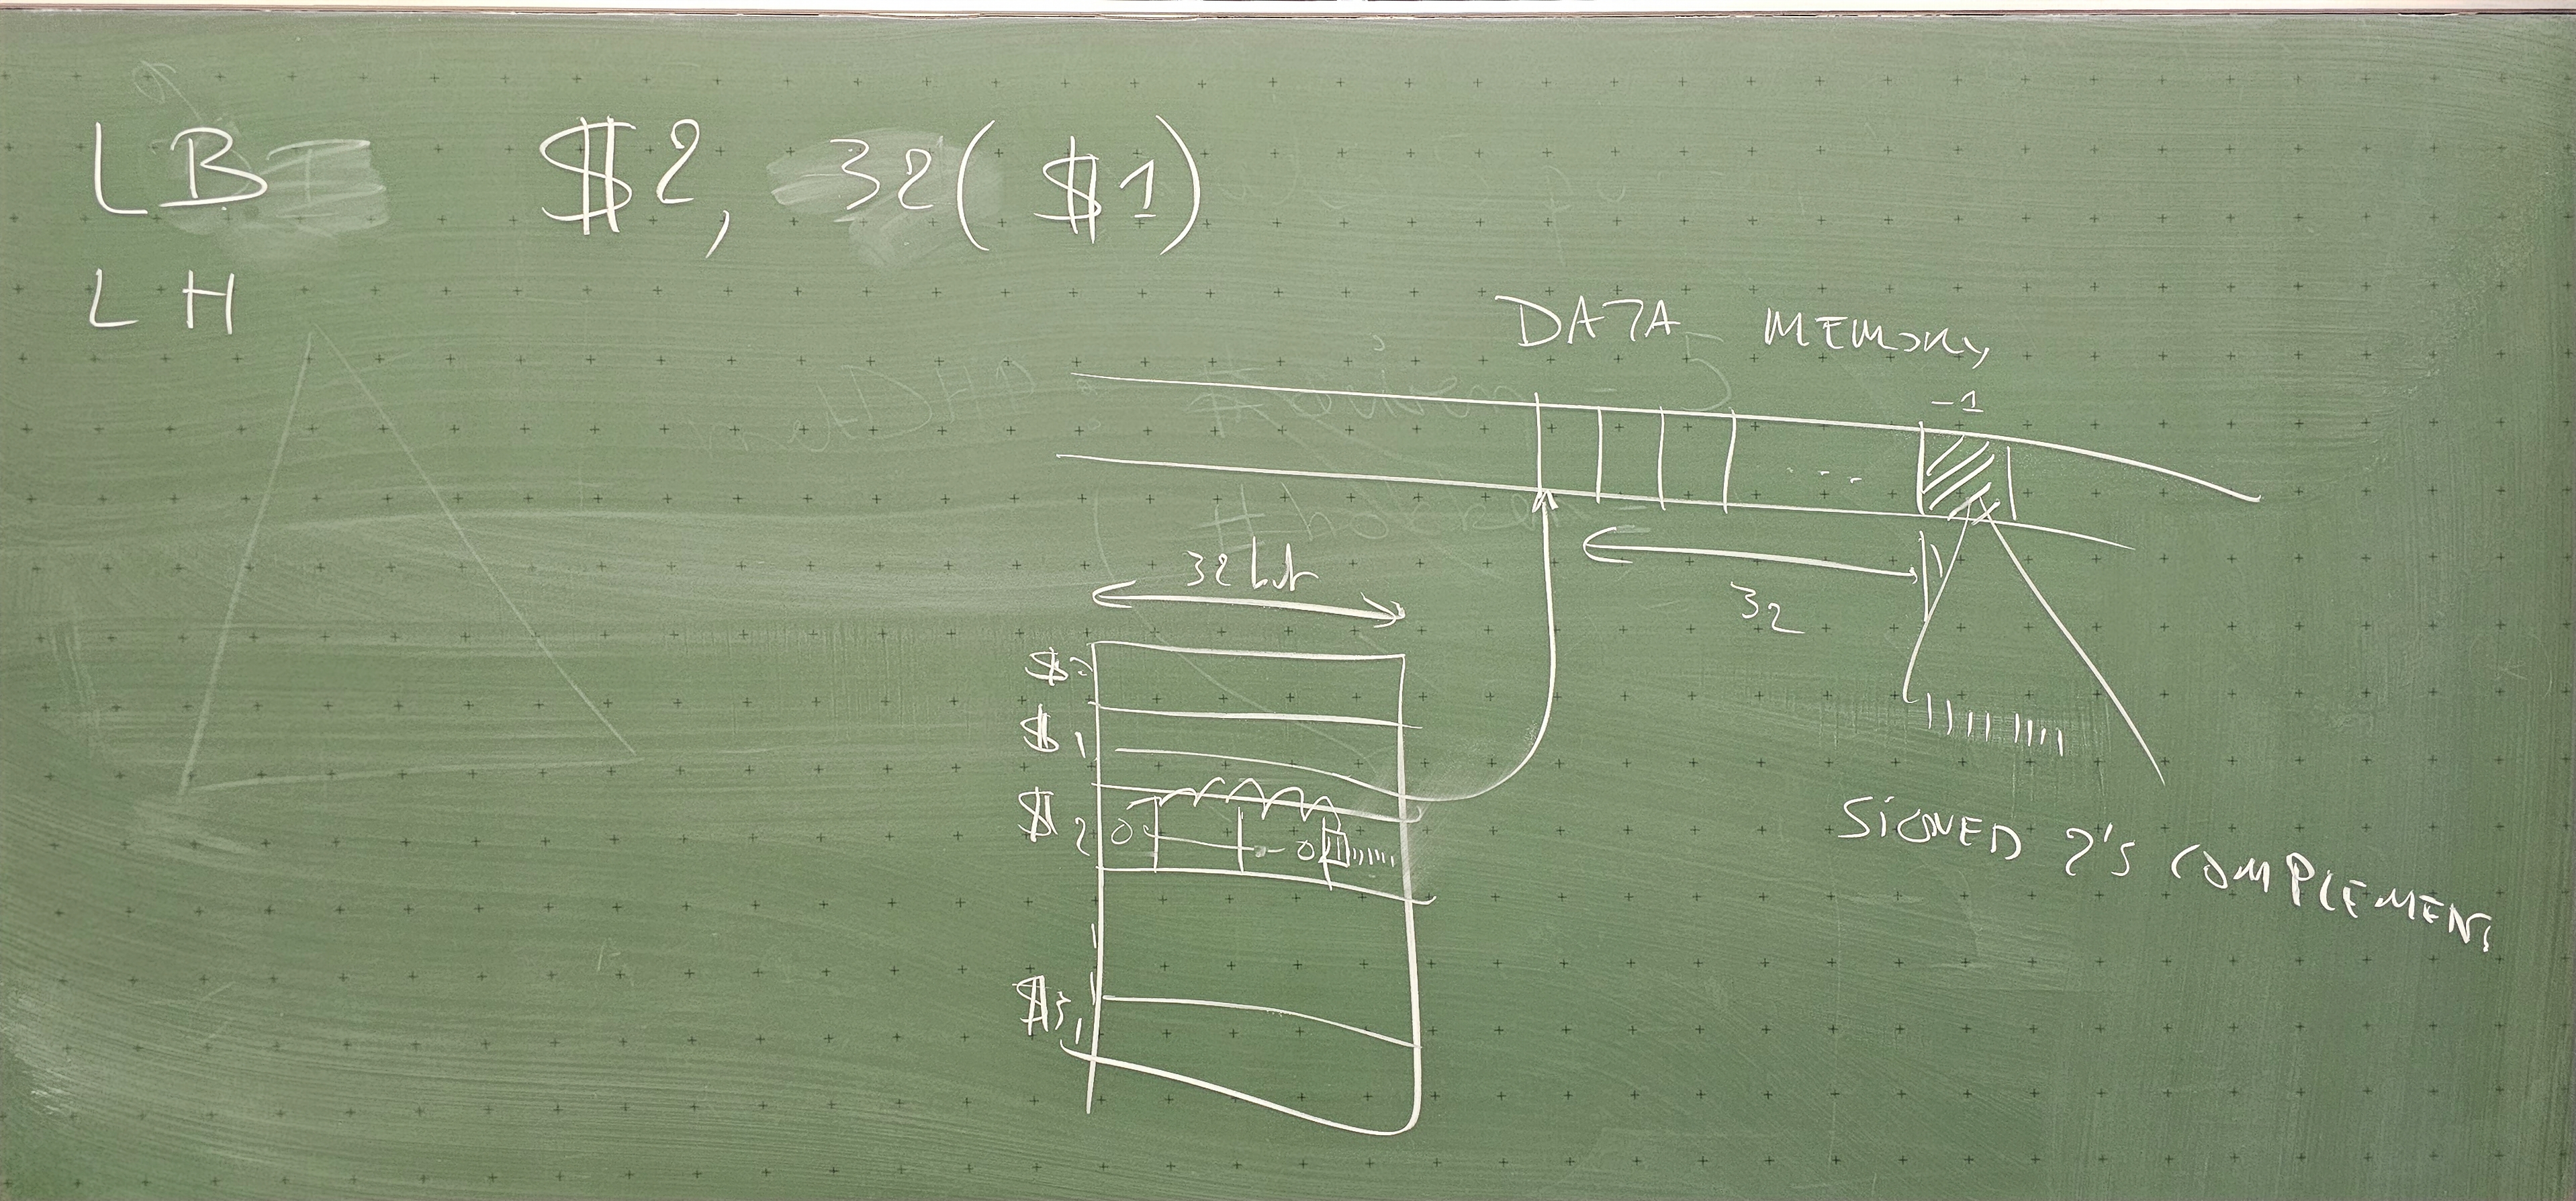 LB $2, 32($1)
LH
DATA MEMORY
-1
32 bit
32
$0
$1
$2 0 0 1
$31
SIGNED 2'S COMPLEMENT